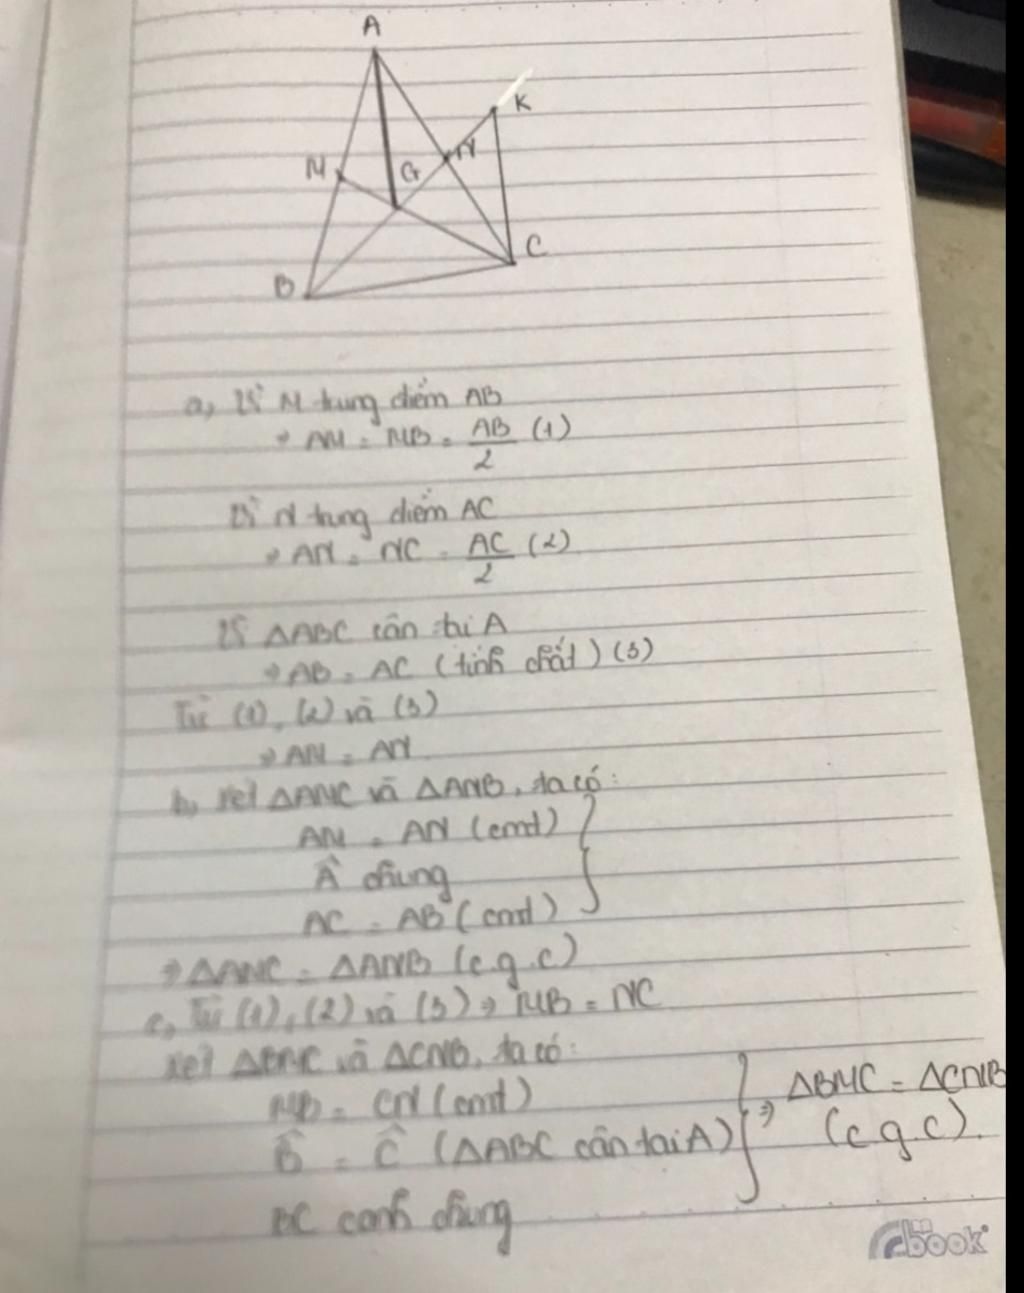 A
K
M
N
G
C
B
a, Vì M trung điểm AB
⇒ AM = MB = AB/2 (1)
Vì N trung điểm AC
⇒ AN = NC = AC/2 (2)
Vì ΔABC cân tại A
⇒ AB = AC (tính chất) (3)
Từ (1), (2) và (3)
⇒ AM = AN
b, Xét ΔAMC và ΔANB, ta có:
AM = AN (cmt)
Â chung
AC = AB (cmt)
⇒ ΔAMC = ΔANB (c.g.c)
c, Từ (1), (2) và (3) ⇒ MB = NC
Xét ΔBMC và ΔCNB, ta có:
MB = CN (cmt)
B̂ = Ĉ (ΔABC cân tại A)
BC cạnh chung
⇒ ΔBMC = ΔCNB
(c g.c).
book